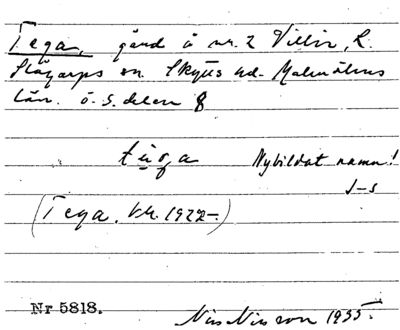 Tega, gård å nr. 2 Villie, L.
Slågarps sn. Skytts hd. Malmöhus
län. ö. S. delen 8
Nybildat namn!
J-s
(Tega. kk. 1922-)
Nr 5818.
Nils Nilsson 1955.